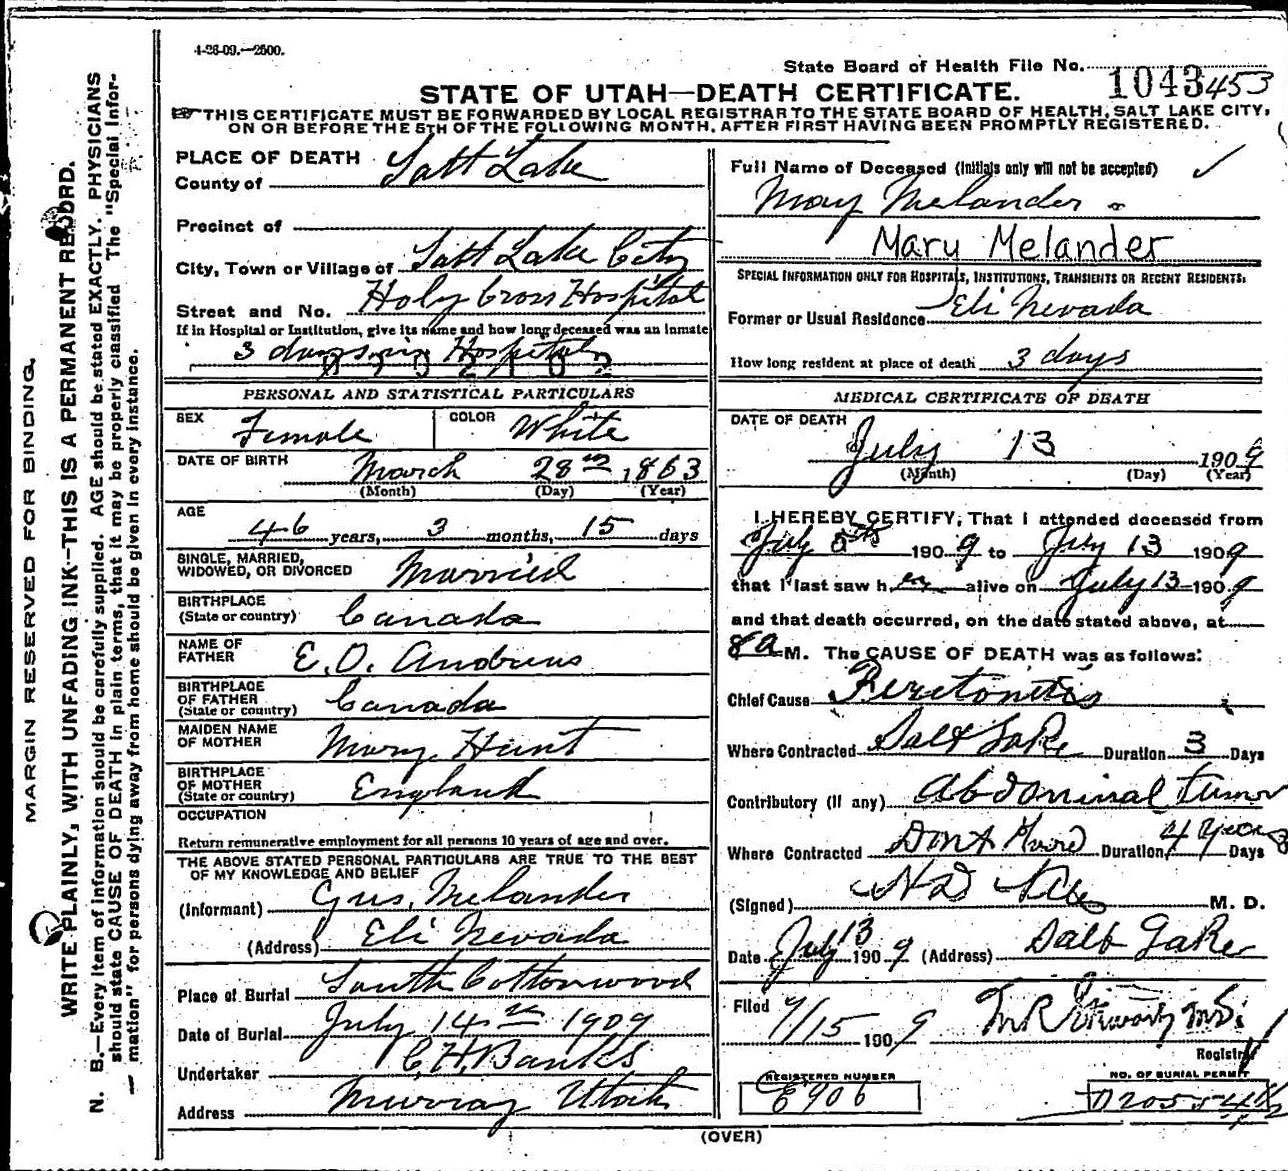 4-26-09.—2500.
State Board of Health File No. 1043 453
STATE OF UTAH—DEATH CERTIFICATE.
THIS CERTIFICATE MUST BE FORWARDED BY LOCAL REGISTRAR TO THE STATE BOARD OF HEALTH, SALT LAKE CITY,
ON OR BEFORE THE 5TH OF THE FOLLOWING MONTH, AFTER FIRST HAVING BEEN PROMPTLY REGISTERED.
MARGIN RESERVED FOR BINDING.
WRITE PLAINLY, WITH UNFADING INK—THIS IS A PERMANENT RECORD.
N. B.—Every item of information should be carefully supplied. AGE should be stated EXACTLY. PHYSICIANS
should state CAUSE OF DEATH in plain terms, that it may be properly classified The "Special Infor-
mation" for persons dying away from home should be given in every instance.
PLACE OF DEATH
County of Salt Lake
Precinct of
City, Town or Village of Salt Lake City
Street and No. Holy Cross Hospital
If in Hospital or Institution, give its name and how long deceased was an inmate
3 days in Hospital
PERSONAL AND STATISTICAL PARTICULARS
SEX Female COLOR White
DATE OF BIRTH March 28th, 1863
(Month) (Day) (Year)
AGE
46 years, 3 months, 15 days
SINGLE, MARRIED,
WIDOWED, OR DIVORCED Married
BIRTHPLACE
(State or country) Canada
NAME OF
FATHER E. O. Andrews
BIRTHPLACE
OF FATHER
(State or country) Canada
MAIDEN NAME
OF MOTHER Mary Hunt
BIRTHPLACE
OF MOTHER
(State or country) England
OCCUPATION
Return remunerative employment for all persons 10 years of age and over.
THE ABOVE STATED PERSONAL PARTICULARS ARE TRUE TO THE BEST
OF MY KNOWLEDGE AND BELIEF
(Informant) Gus. Melander
(Address) Eli Nevada
Place of Burial South Cottonwood
Date of Burial July 14th 1909
Undertaker C. H. Banks
Address Murray Utah
Full Name of Deceased (Initials only will not be accepted)
May Melander
Mary Melander
SPECIAL INFORMATION ONLY FOR HOSPITALS, INSTITUTIONS, TRANSIENTS OR RECENT RESIDENTS.
Former or Usual Residence Eli Nevada
How long resident at place of death 3 days
MEDICAL CERTIFICATE OF DEATH
DATE OF DEATH
July 13 1909
(Month) (Day) (Year)
I HEREBY CERTIFY, That I attended deceased from
July 1909 to July 13 1909
that I last saw her alive on July 13 1909
and that death occurred, on the date stated above, at
8 a M. The CAUSE OF DEATH was as follows:
Chief Cause Peritonitis
Where Contracted Salt Lake Duration 3 Days
Contributory (if any) Abdominal tumor
Where Contracted Dont Know Duration 4 years Days
(Signed) M. D.
Date July 13 1909 (Address) Salt Lake
Filed 7/15 1909
Registrar
REGISTERED NUMBER
E906
NO. OF BURIAL PERMIT
(OVER)